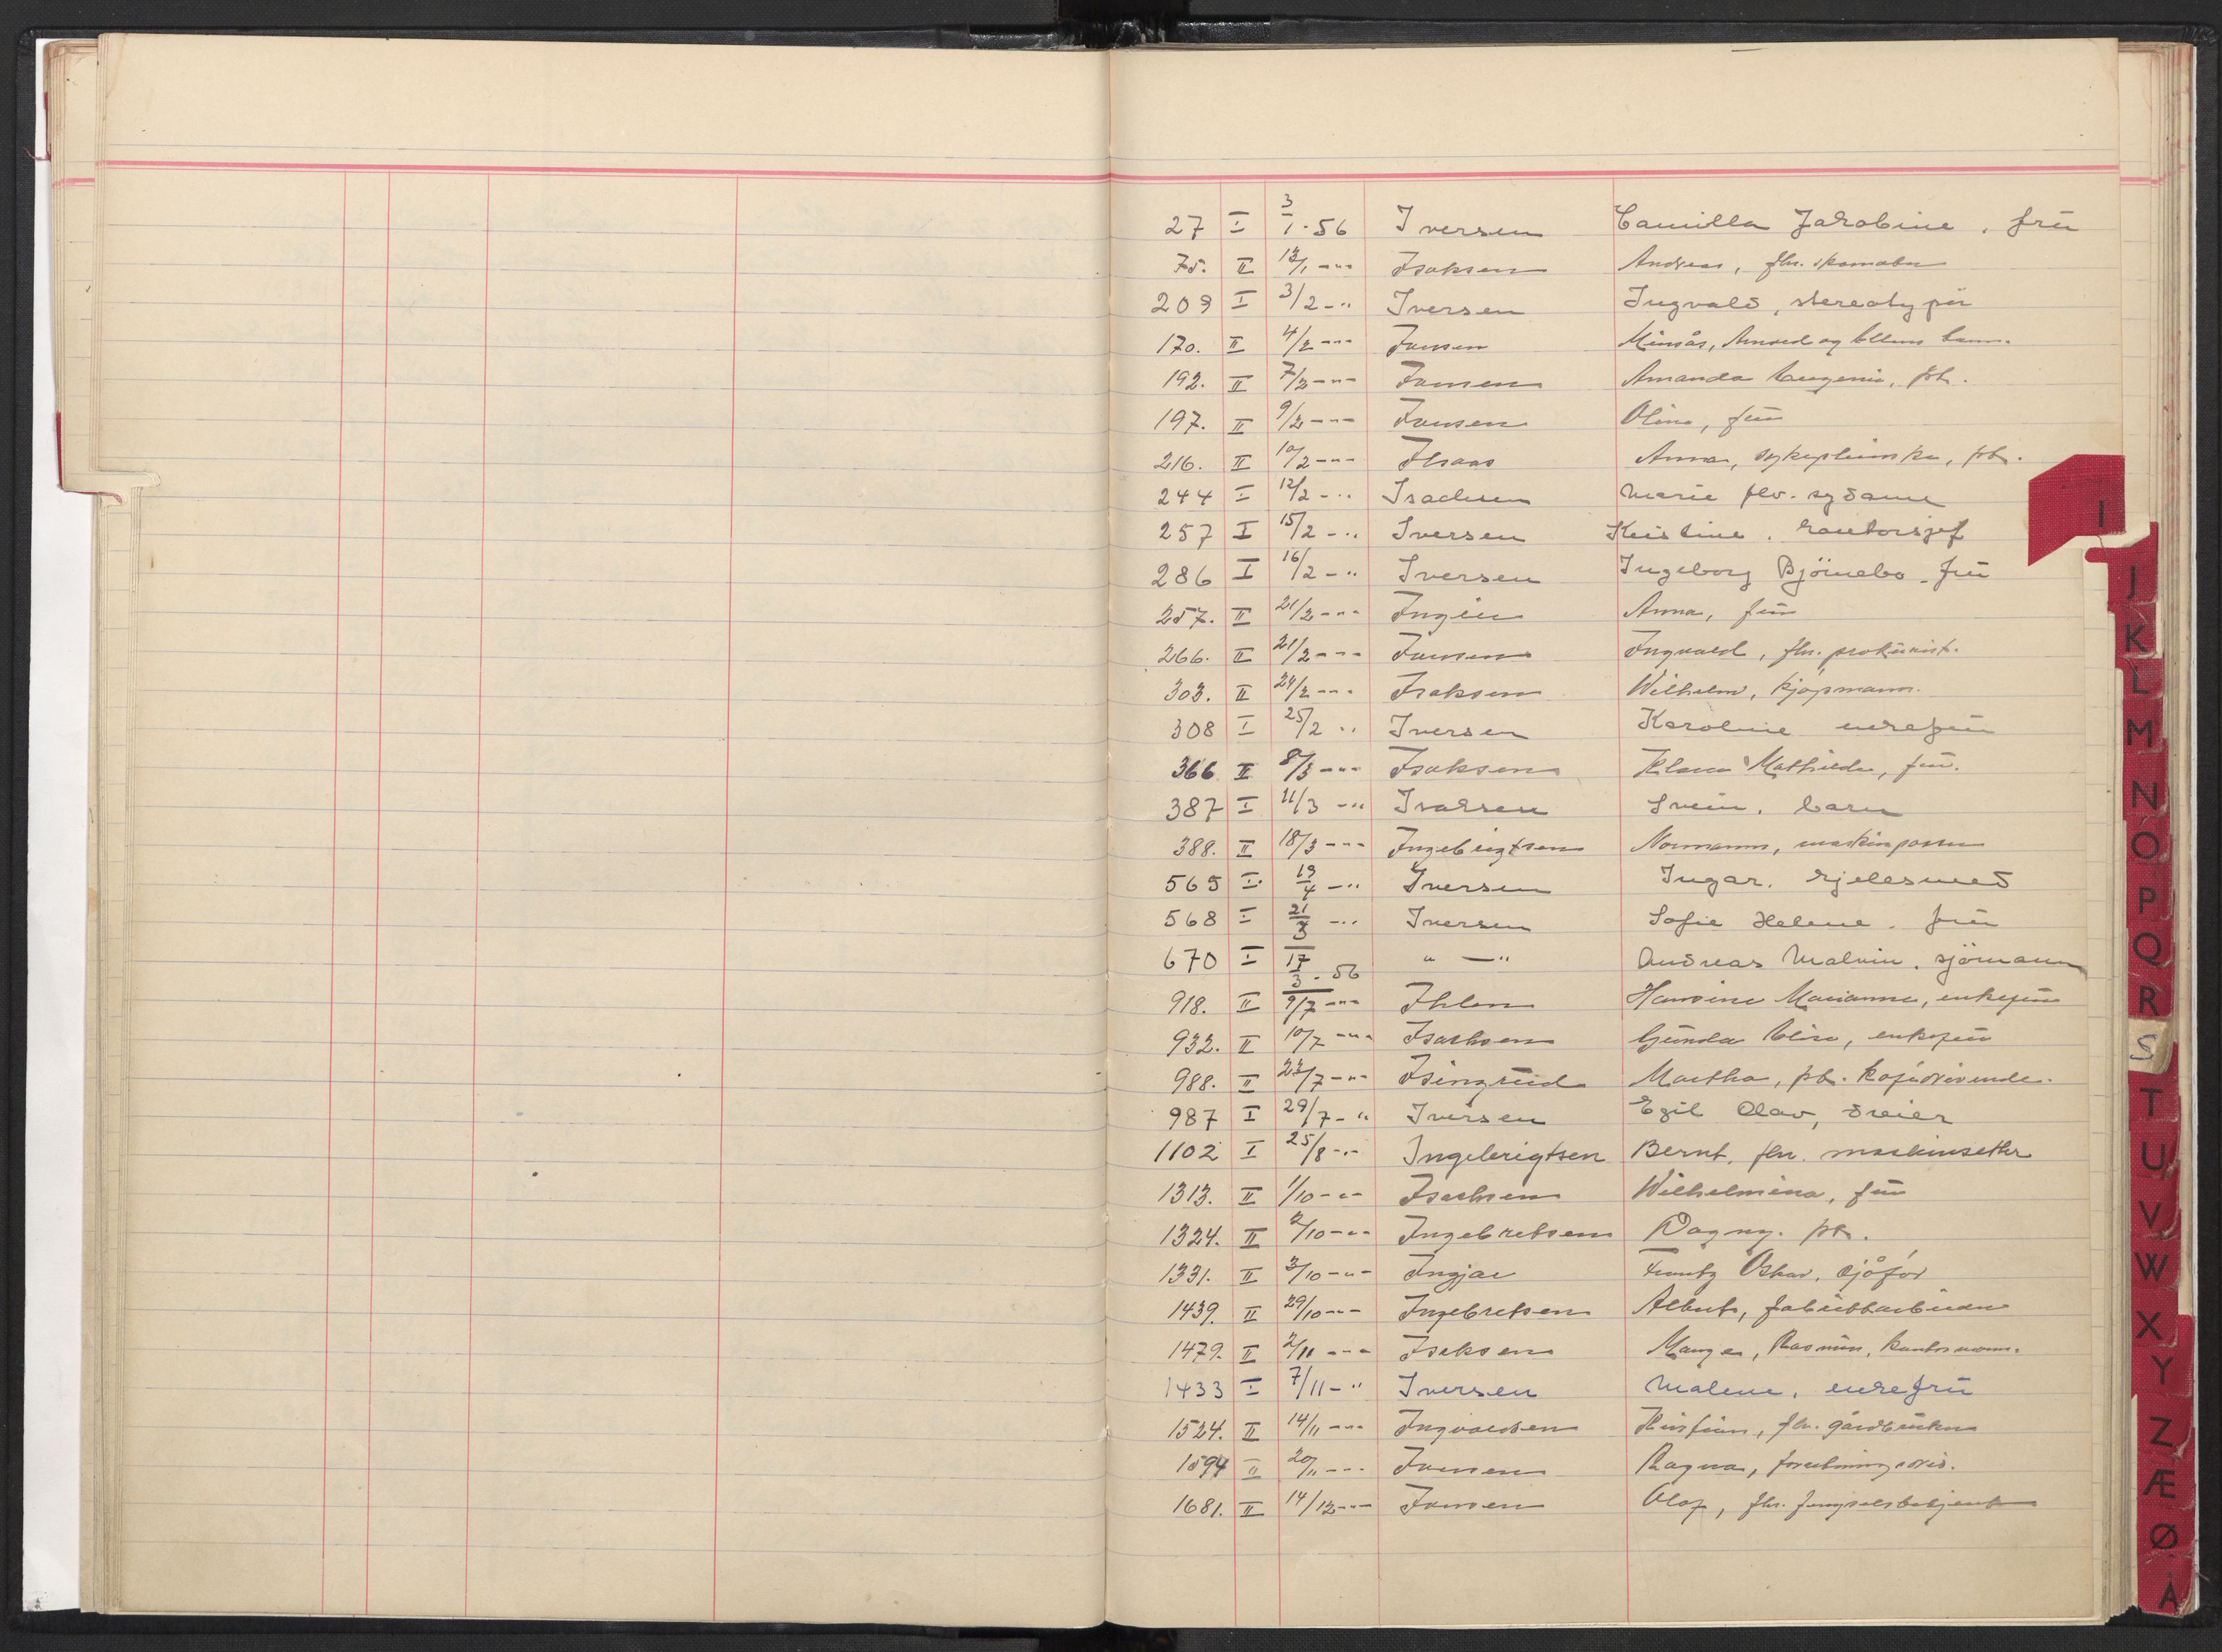 27 I 3/1-56 Iversen Camilla Jakobine, frü
75. II 12/1 -"- Isaksen Andreas, fhv. skomaker
209 I 3/2 -" Iversen Ingvald, stereotypör
170. II 4/2 -"- Iversen og Ellens barn.
192. II 7/2 -"- Iversen Amanda Eugenie, pb.
197. II 9/2 -"- Iversen Olina, frü
216. II 10/2 -"- Anna, sykepleierske, pb.
244 I 12/2 -" Isachsen Marie fhv. sydame
257 I 15/2 -" Iversen Kristine. kontorsjef
286 I 16/2 -" Iversen Ingeborg Björnebo. frü
257. II 21/2 -"- Anna, frü
266. II 21/2 -"- Iversen Ingvald, fhv. prokürist.
303. II 24/2 -"- Isaksen Wilhelm, kjøpmann.
308 I 25/2 " Iversen Karoline enkefrü
366 II 8/3 -"- Isaksen Klara Mathilde, frü.
387 I 11/3 -" Isaksen Svein. barn
388. II 18/3 -"- Ingebrigtsen Normann, maskinpasser
565 I 19/4 -" Iversen Ingar. kjelesmed
568 I 21/3 -" Iversen Sofie Helene. frü
670 I 17/3-56 " -" Andreas Malvin. sjömann
918. II 9/7 -"- Ihlen Hansine Marianne, enkefrü
932. II 10/7 -"- Isachsen Günda Elise, enkefrü
988. II 23/7 -"- Isingrüd Martha, pb. kafédrivende.
987 I 29/7 -" Iversen Egil Olav, dreier
1102 I 25/8 -"- Ingebrigtsen Bernt, fhv. maskinsetter
1313. II 1/10 -"- Isachsen Wilhelmina, frü
1324. II 2/10 -"- Ingebretsen Dagny. pb.
1331. II 3/10 -"- Ingjar Frantz Oskar, sjåfør
1439. II 29/10 -"- Ingebretsen Albert, fabrikkarbeider
1479. II 2/11 -"- Isaksen Rasmus, kontormann.
1433 I 7/11 -" Iversen Malene, enkefrü
1524. II 14/11 -"- Ingvaldsen fhv. gårdbrüker
1594 II 20/11 -"- Iversen Ragna, forretningsdriv.
1681. II 14/12 -"- Iversen Olaf, fhv. fengselsbetjent
I
J
K
L
M
N
O
P
Q
R
S
T
U
V
W
X
Y
Z
Æ
Ø
Å